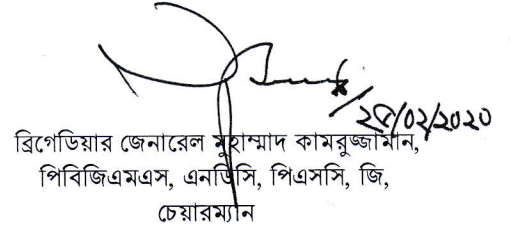 ২৫/০২/২০২০
ব্রিগেডিয়ার জেনারেল মুহাম্মাদ কামরুজ্জামান,
পিবিজিএমএস, এনডিসি, পিএসসি, জি,
চেয়ারম্যান